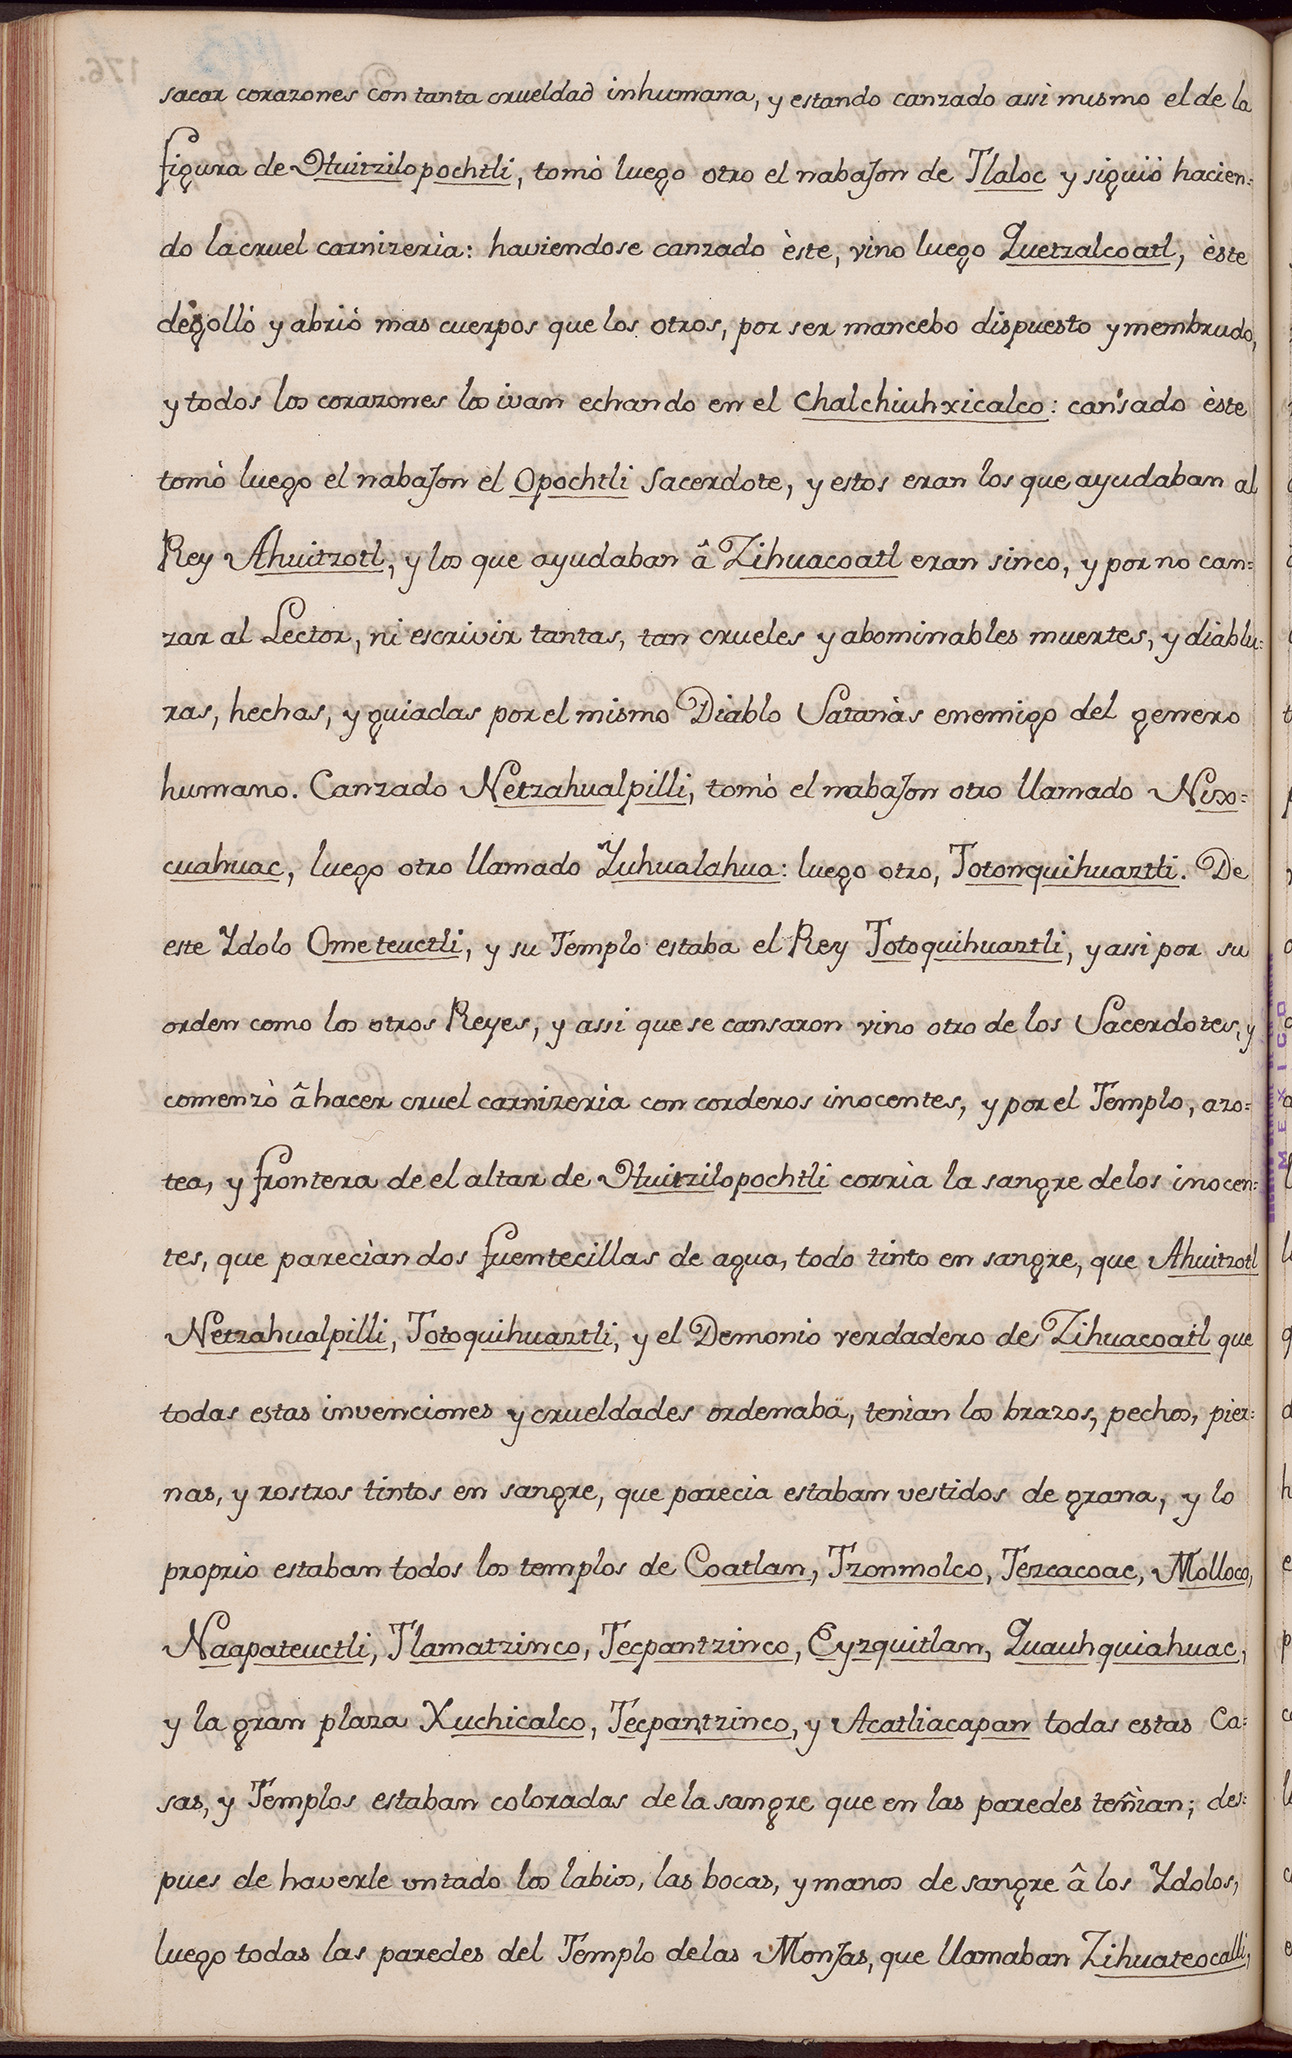 sacar corazones con tanta crueldad inhumana, y estando canzado assi mismo el de la
figura de Huitzilopochtli, tomò luego otro el nabajon de Tlaloc y siguiò hacien=
do la cruel carnizeria: haviendose canzado èste, vino luego Quetzalcoatl, èste
degollò y abriò mas cuerpos que los otros, por ser mancebo dispuesto y membrudo,
y todos los corazones los ivan echando en el Chalchiuhxicalco: cansado èste
tomò luego el nabajon el Opochtli Sacerdote, y estos eran los que ayudaban al
Rey Ahuitzotl, y los que ayudaban â Zihuacoatl eran sinco, y por no can=
zar al Lector, ni escrivir tantas, tan crueles y abominables muertes, y diablu=
ras, hechas, y guiadas por el mismo Diablo Satanàs enemigo del genero
humano. Canzado Netzahualpilli, tomò el nabajon otro llamado Nixo=
cuahuac, luego otro llamado Yuhualahua: luego otro, Totonquihuaztli. De
este Ydolo Ometeuctli, y su Templo estaba el Rey Totoquihuaztli, y assi por su
orden como los otros Reyes, y assi que se cansaron vino otro de los Sacerdotes, y
comenzò â hacer cruel carnizeria con corderos inocentes, y por el Templo, azo=
tea, y frontera de el altar de Huitzilopochtli corrìa la sangre de los inocen=
tes, que parecìan dos fuentecillas de agua, todo tinto en sangre, que Ahuitzotl
Netzahualpilli, Totoquihuaztli, y el Demonio verdadero de Zihuacoatl que
todas estas invenciones y crueldades ordenaba, tenian los brazos, pechos, pier=
nas, y rostros tintos en sangre, que parecia estaban vestidos de grana, y lo
proprio estaban todos los templos de Coatlan, Tzonmolco, Tezcacoac, Molloco,
Naapateuctli, Tlamatzinco, Tecpantzinco, Eyzquitlan, Quauhquiahuac,
y la gran plaza Xuchicalco, Tecpantzinco, y Acatliacapan todas estas Ca=
sas, y Templos estaban coloradas de la sangre que en las paredes teñian; des=
pues de haverle untado los labios, las bocas, y manos de sangre â los Ydolos,
luego todas las paredes del Templo de las Monjas, que llamaban Zihuateocalli,
MEXICO